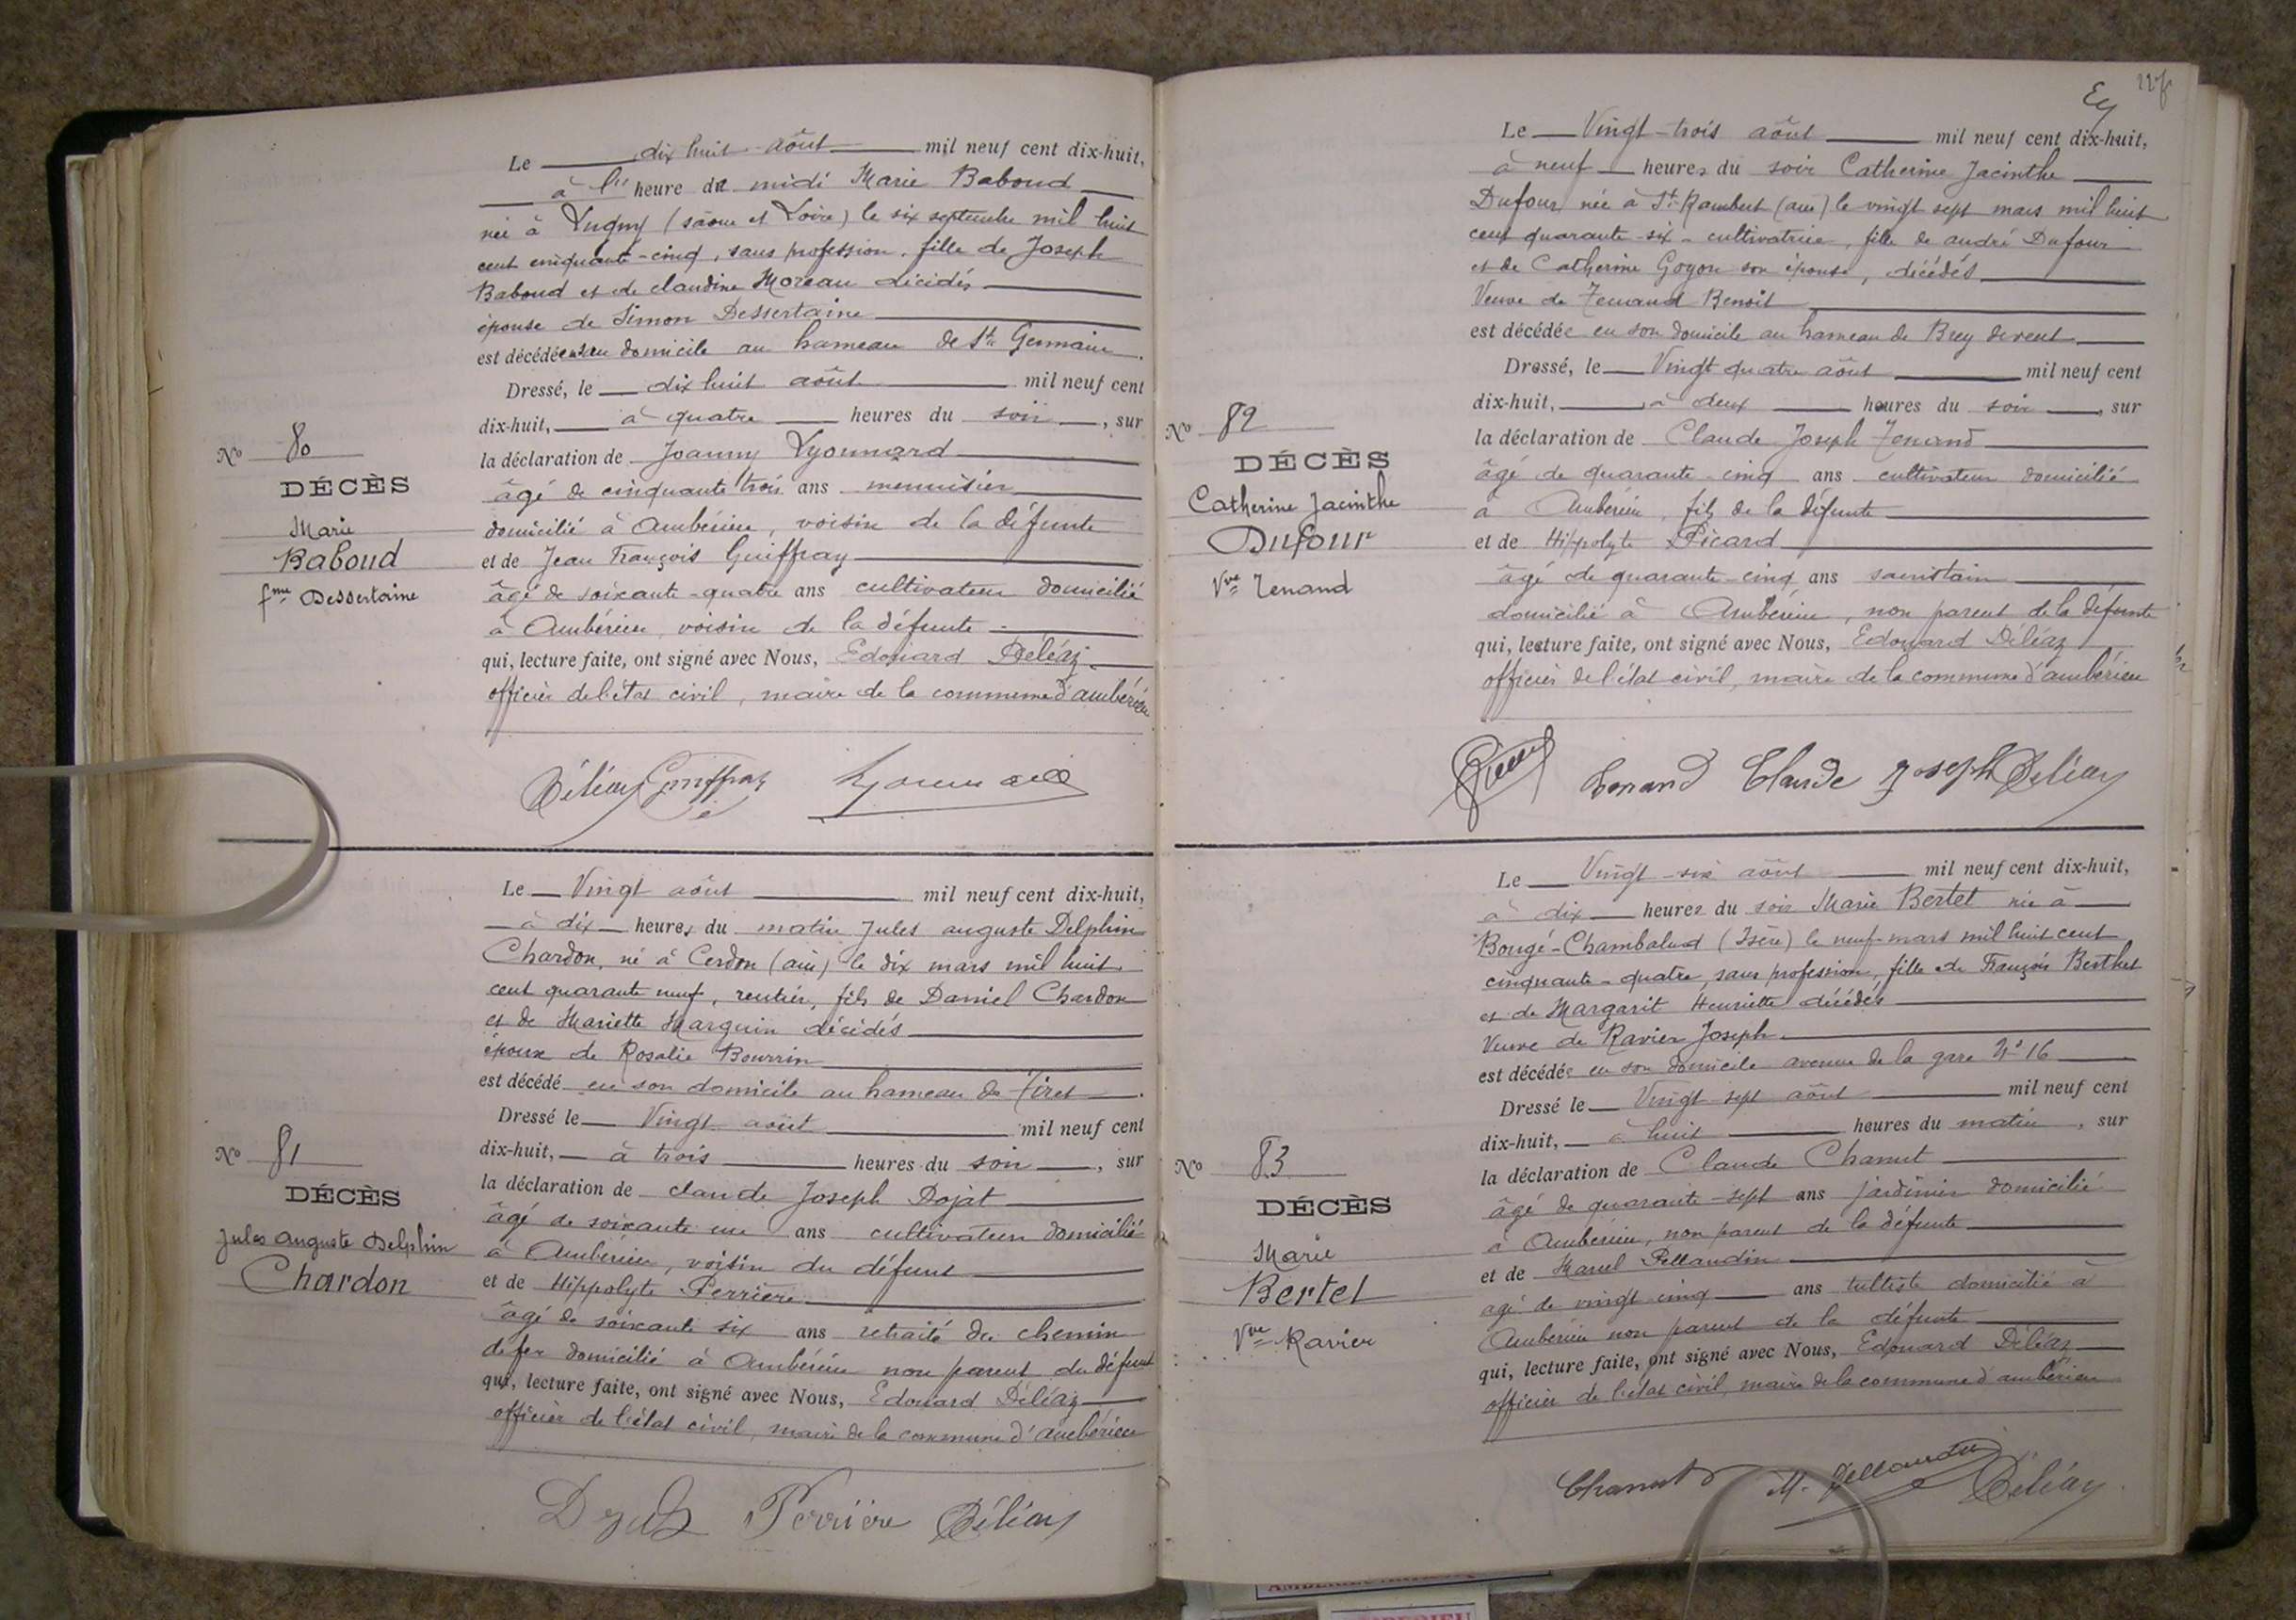 Le dix huit août mil neuf cent dix-huit,
à heure de midi Marie Baboud
née à Lugny (saône et Loire) le six septembre mil huit
cent cinquante-cinq, sans profession, fille de Joseph
Baboud et de claudine Moreau décédés
épouse de Simon Dessertaine
est décédée en son domicile au hameau de St Germain.
Dressé, le dix huit août mil neuf cent
dix-huit, à quatre heures du soir, sur
la déclaration de Joanny Lyonnard
âgé de cinquante trois ans menuisier
domicilié à Ambérieu, voisin de la défunte
et de Jean François Guiffray
âgé de soixante-quatre ans cultivateur domicilié
à Ambérieu, voisin de la défunte
qui, lecture faite, ont signé avec Nous, Edouard Déléaz
officier de l'état civil, maire de la commune d'ambérieu
No 80
DÉCÈS
Marie
Baboud
fme Dessertaine
Déléaz Guiffray Lyonnard
Le Vingt août mil neuf cent dix-huit,
à dix heures du matin Jules auguste Delphin
Chardon, né à Cerdon (ain) le dix mars mil huit
cent quarante neuf, rentier, fils de Daniel Chardon
et de Mariette Marguin décédés
époux de Rosalie Bourrin
est décédé en son domicile au hameau de Tiret.
Dressé le Vingt août mil neuf cent
dix-huit, à trois heures du soir, sur
la déclaration de claude Joseph Dojat
âgé de soixante un ans cultivateur domicilié
à Ambérieu, voisin du défunt
et de Hippolyte Perrière
âgé de soixante six ans retraité du chemin
de fer domicilié à Ambérieu non parent du défunt
qui, lecture faite, ont signé avec Nous, Edouard Déléaz
officier de l'état civil, maire de la commune d'ambérieu
No 81
DÉCÈS
Jules auguste Delphin
Chardon
Perrière Déléaz
Le Vingt-trois août mil neuf cent dix-huit,
à neuf heures du soir Catherine Jacinthe
Dufour, née à St Rambert (ain) le vingt sept mars mil huit
cent quarante-six - cultivatrice, fille de andré Dufour
et de Catherine Goyon son épouse, décédés
Veuve de Tenand Benoit
est décédée en son domicile au hameau de Brey devent
Dressé, le Vingt quatre août mil neuf cent
dix-huit, à deux heures du soir, sur
la déclaration de Claude Joseph Tenand
âgé de quarante-cinq ans cultivateur domicilié
à Ambérieu, fils de la défunte
et de Hippolyte Picard
âgé de quarante-cinq ans sacristain
domicilié à Ambérieu, non parent de la défunte
qui, lecture faite, ont signé avec Nous, Edouard Déléaz
officier de l'état civil, maire de la commune d'ambérieu
No 82
DÉCÈS
Catherine Jacinthe
Dufour
Vve Tenand
Tenand Claude Joseph Déléaz
Le Vingt-six août mil neuf cent dix-huit,
à dix heures du soir Marie Bertet née à
Bougé-Chambalud (Isère) le neuf mars mil huit cent
cinquante-quatre, sans profession, fille de François Berthet
et de Margarit Henriette décédés
Veuve de Ravier Joseph
est décédée en son domicile avenue de la gare No 16
Dressé le Vingt sept août mil neuf cent
dix-huit, à huit heures du matin, sur
la déclaration de Claude Chanut
âgé de quarante-sept ans jardinier domicilié
à Ambérieu, non parent de la défunte
et de Marcel Pellaudin
agé de vingt cinq ans tulliste domicilié à
Ambérieu non parent de la défunte
qui, lecture faite, ont signé avec Nous, Edouard Déléaz
officier de l'état civil, maire de la commune d'ambérieu
No 83
DÉCÈS
Marie
Bertet
Vve Ravier
Chanut M. Pellaudin Déléaz